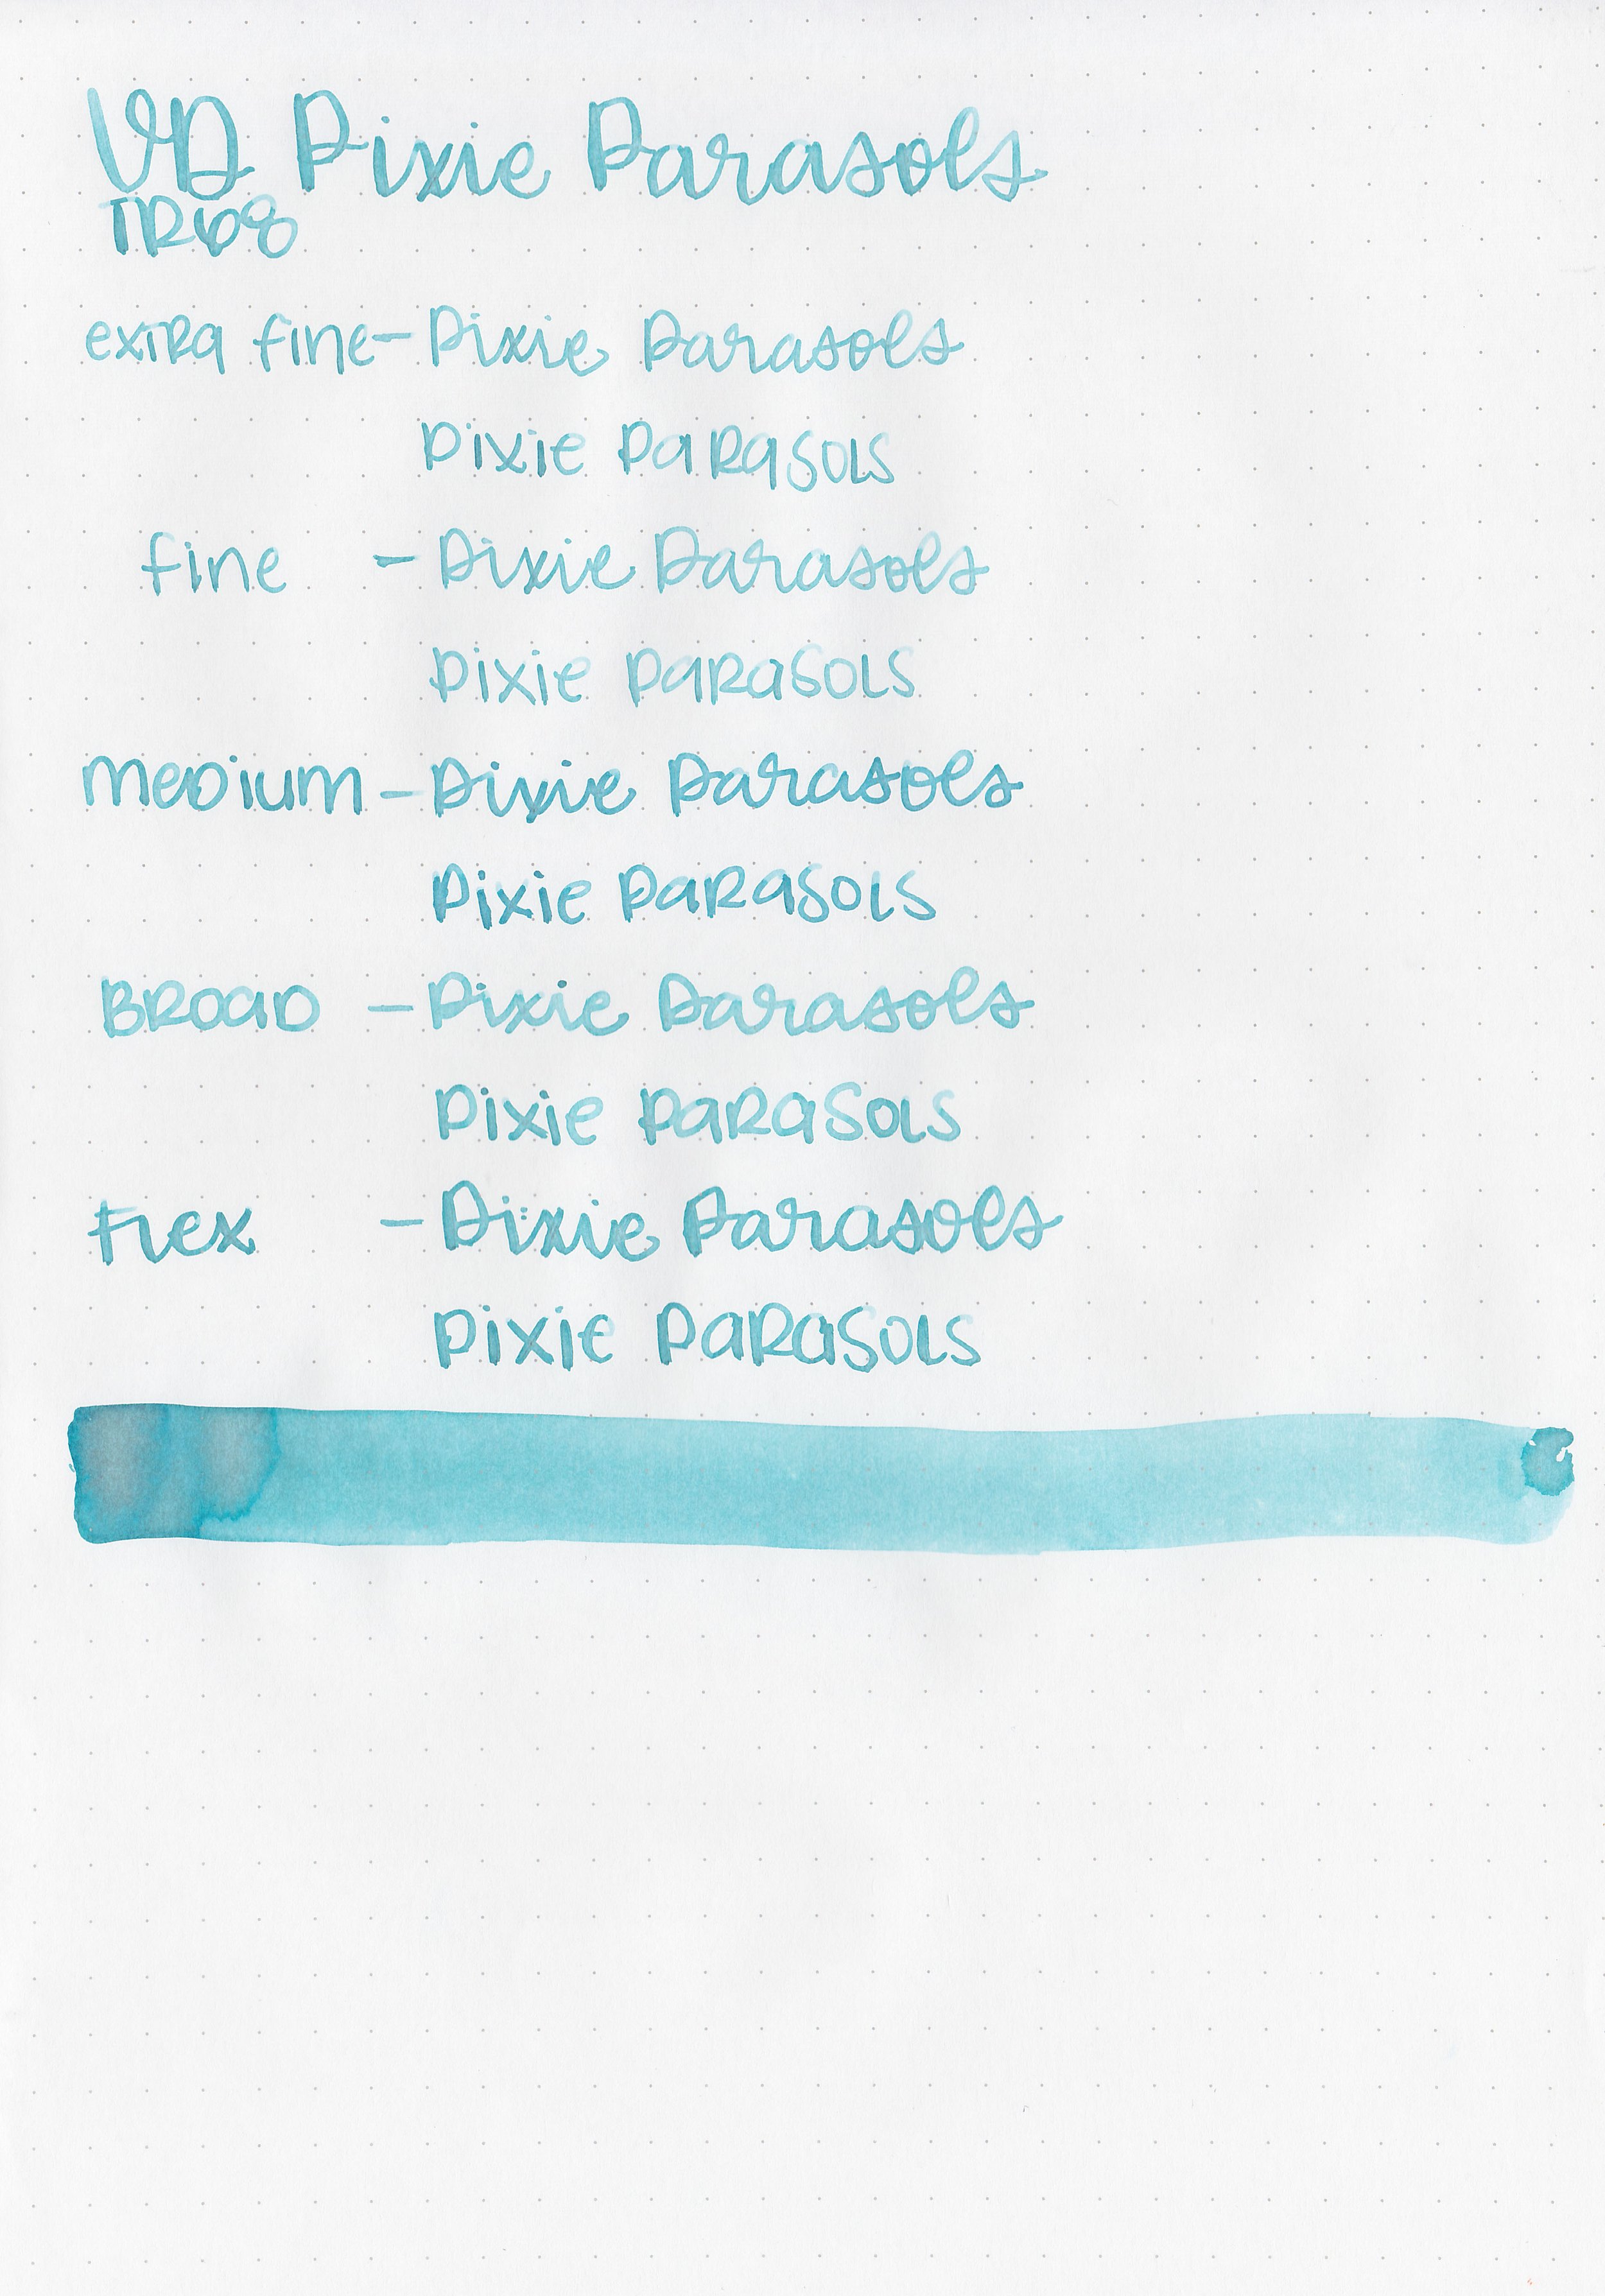 VD Pixie Parasols
TR68
extra fine - Pixie Parasols
Pixie Parasols
fine - Pixie Parasols
Pixie Parasols
medium - Pixie Parasols
Pixie Parasols
Broad - Pixie Parasols
Pixie Parasols
Flex - Pixie Parasols
Pixie Parasols